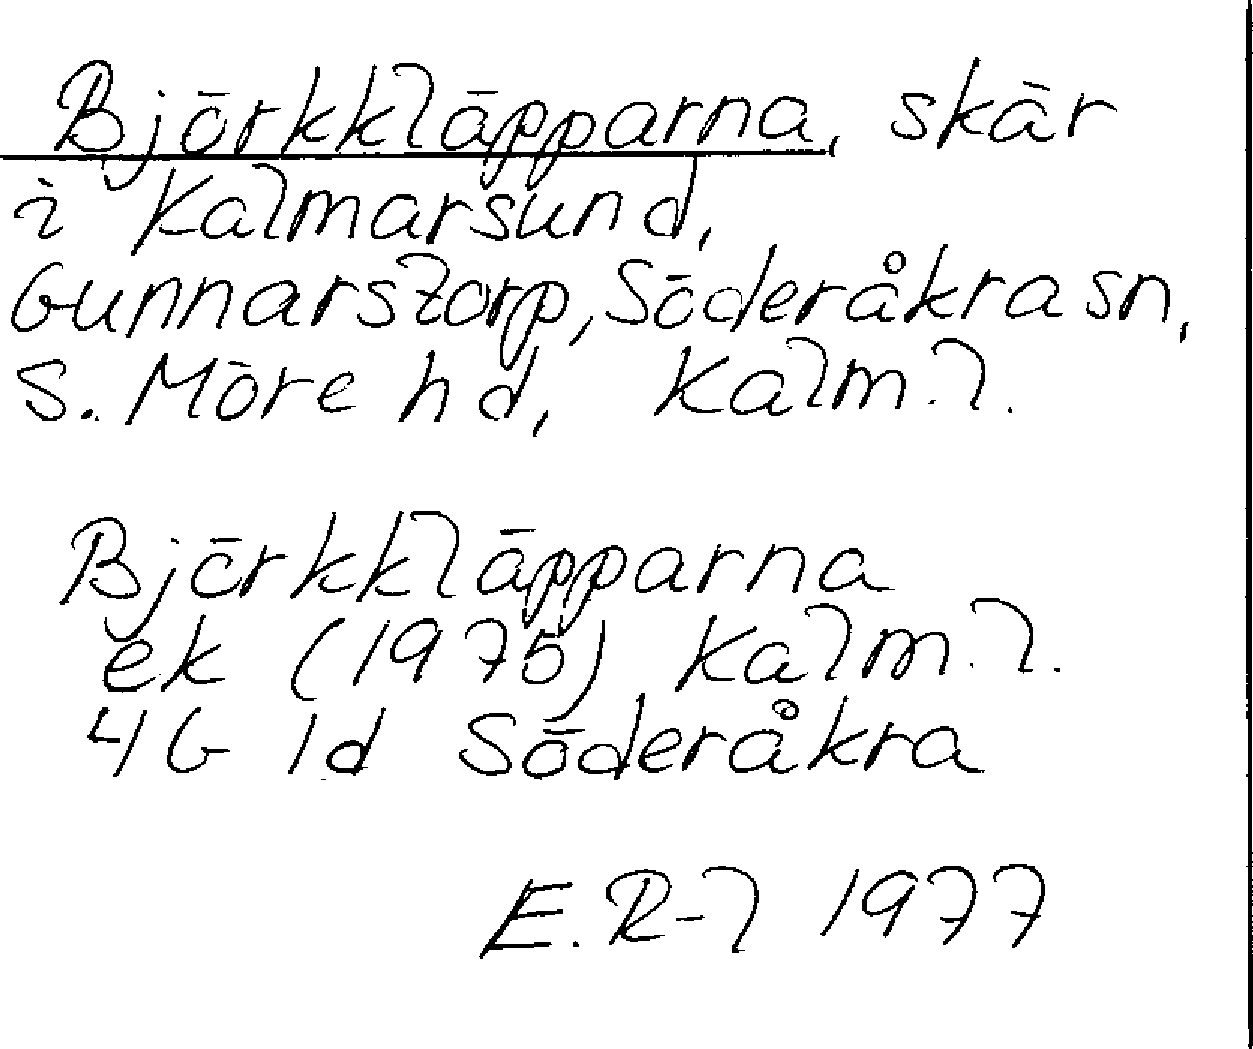 Björkkläpparna, skär
i Kalmarsund,
Gunnarstorp, Söderåkra sn,
S. Möre hd, Kalm. l.
Björkkläpparna
ek (1975) Kalm. l.
4G 1d Söderåkra
E. R-l 1977